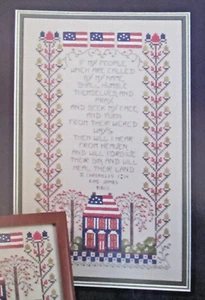 IF MY PEOPLE,
WHICH ARE CALLED
BY MY NAME,
SHALL HUMBLE
THEMSELVES, AND
PRAY,
AND SEEK MY FACE,
AND TURN
FROM THEIR WICKED
WAYS;
THEN WILL I HEAR
FROM HEAVEN,
AND WILL FORGIVE
THEIR SIN, AND WILL
HEAL THEIR LAND
II CHRONICLES 7:14
KING JAMES
BIBLE